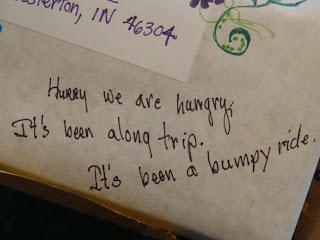 IN 46304
Hurry we are hungry.
It's been along trip.
It's been a bumpy ride.